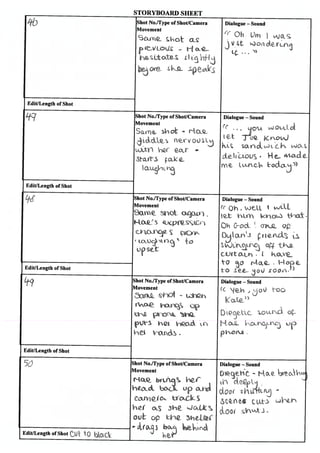 STORYBOARD SHEET
46
Shot No./Type of Shot/Camera
Movement
Same shot as
previous - Mae
hesitates slightly
before she speaks
Dialogue – Sound
" Oh Um I was
just wondering
if ... "
Edit/Length of Shot
47
Shot No./Type of Shot/Camera
Movement
Same shot - Mae
fiddles nervously
with her ear -
starts fake
laughing
Dialogue – Sound
" ... you would
let Joe know
his sandwich was
delicious. He made
me lunch today "
Edit/Length of Shot
48
Shot No./Type of Shot/Camera
Movement
Same shot again.
Mae's expression
changes from
'laughing' to
upset
Dialogue – Sound
" Oh, well I will
let him know that.
Oh God! one of
Dylan's friends is
swinging off the
curtain. I have
to go Mae. Hope
to see you soon. "
Edit/Length of Shot
49
Shot No./Type of Shot/Camera
Movement
Same shot - when
mae hangs up
the phone she
puts her head in
her hands.
Dialogue – Sound
" Yeh, you too
Kate "
Diegetic sound of
Mae hanging up
phone.
Edit/Length of Shot
50
Shot No./Type of Shot/Camera
Movement
Mae brings her
head back up and
camera tracks
her as she walks
out of the shelter
- drags bag behind
her
Dialogue – Sound
Diegetic - Mae breathing
in deeply
door shutting -
scene cuts when
door shuts.
Edit/Length of Shot Cut to black